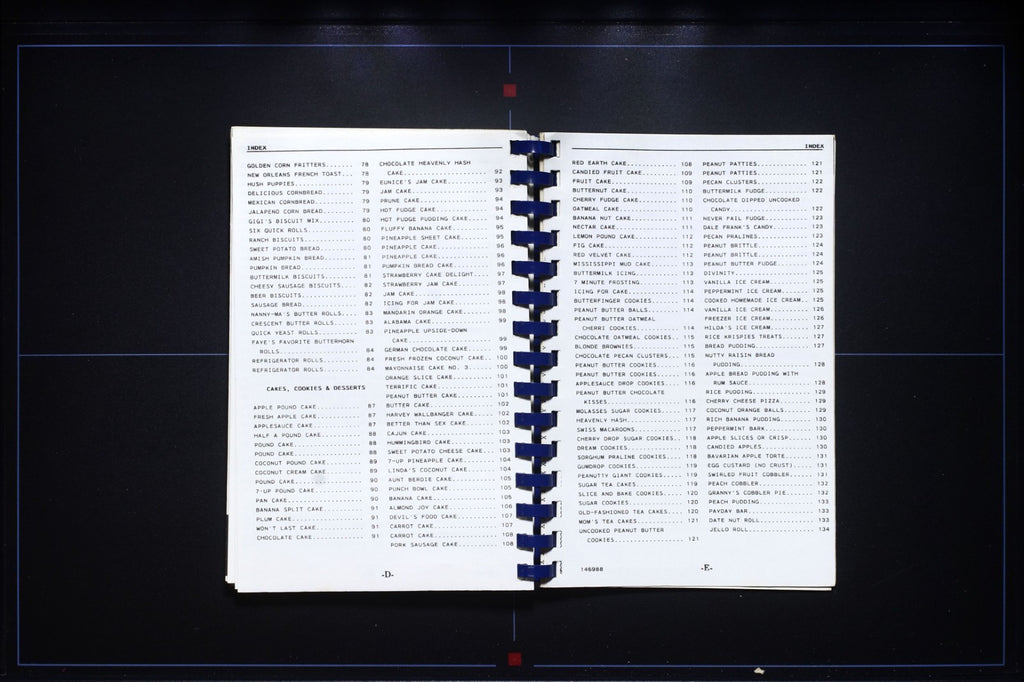 INDEX
GOLDEN CORN FRITTERS....... 78
NEW ORLEANS FRENCH TOAST... 78
HUSH PUPPIES............... 79
DELICIOUS CORNBREAD........ 79
MEXICAN CORNBREAD.......... 79
JALAPENO CORN BREAD........ 79
GIGI'S BISCUIT MIX......... 80
SIX QUICK ROLLS............ 80
RANCH BISCUITS............. 80
SWEET POTATO BREAD......... 80
AMISH PUMPKIN BREAD........ 81
PUMPKIN BREAD.............. 81
BUTTERMILK BISCUITS........ 81
CHEESY SAUSAGE BISCUITS.... 82
BEER BISCUITS.............. 82
SAUSAGE BREAD.............. 82
NANNY-MA'S BUTTER ROLLS.... 83
CRESCENT BUTTER ROLLS...... 83
QUICK YEAST ROLLS.......... 83
FAYE'S FAVORITE BUTTERHORN
ROLLS.................... 84
REFRIGERATOR ROLLS......... 84
REFRIGERATOR ROLLS......... 84
CAKES, COOKIES & DESSERTS
APPLE POUND CAKE........... 87
FRESH APPLE CAKE........... 87
APPLESAUCE CAKE............ 87
HALF A POUND CAKE.......... 88
POUND CAKE................. 88
POUND CAKE................. 88
COCONUT POUND CAKE......... 89
COCONUT CREAM CAKE......... 89
POUND CAKE................. 90
7-UP POUND CAKE............ 90
PAN CAKE................... 90
BANANA SPLIT CAKE.......... 91
PLUM CAKE.................. 91
WON'T LAST CAKE............ 91
CHOCOLATE CAKE............. 91
CHOCOLATE HEAVENLY HASH
CAKE..................... 92
EUNICE'S JAM CAKE.......... 93
JAM CAKE................... 93
PRUNE CAKE................. 94
HOT FUDGE CAKE............. 94
HOT FUDGE PUDDING CAKE..... 94
FLUFFY BANANA CAKE......... 95
PINEAPPLE SHEET CAKE....... 95
PINEAPPLE CAKE............. 96
PINEAPPLE CAKE............. 96
PUMPKIN BREAD CAKE......... 96
STRAWBERRY CAKE DELIGHT.... 97
STRAWBERRY JAM CAKE........ 97
JAM CAKE................... 98
ICING FOR JAM CAKE......... 98
MANDARIN ORANGE CAKE....... 98
ALABAMA CAKE............... 99
PINEAPPLE UPSIDE-DOWN
CAKE..................... 99
GERMAN CHOCOLATE CAKE...... 99
FRESH FROZEN COCONUT CAKE.. 100
MAYONNAISE CAKE NO. 3...... 100
ORANGE SLICE CAKE.......... 101
TERRIFIC CAKE.............. 101
PEANUT BUTTER CAKE......... 101
BUTTER CAKE................ 102
HARVEY WALLBANGER CAKE..... 102
BETTER THAN SEX CAKE....... 102
CAJUN CAKE................. 103
HUMMINGBIRD CAKE........... 103
SWEET POTATO CHEESE CAKE... 103
7-UP PINEAPPLE CAKE........ 104
LINDA'S COCONUT CAKE....... 104
AUNT BERDIE CAKE........... 105
PUNCH BOWL CAKE............ 105
BANANA CAKE................ 105
ALMOND JOY CAKE............ 106
DEVIL'S FOOD CAKE.......... 107
CARROT CAKE................ 107
CARROT CAKE................ 108
PORK SAUSAGE CAKE.......... 108
-D-
INDEX
RED EARTH CAKE............. 108
CANDIED FRUIT CAKE......... 109
FRUIT CAKE................. 109
BUTTERNUT CAKE............. 110
CHERRY FUDGE CAKE.......... 110
OATMEAL CAKE............... 110
BANANA NUT CAKE............ 111
NECTAR CAKE................ 111
LEMON POUND CAKE........... 112
FIG CAKE................... 112
RED VELVET CAKE............ 112
MISSISSIPPI MUD CAKE....... 113
BUTTERMILK ICING........... 113
7 MINUTE FROSTING.......... 113
ICING FOR CAKE............. 114
BUTTERFINGER COOKIES....... 114
PEANUT BUTTER BALLS........ 114
PEANUT BUTTER OATMEAL
CHERRI COOKIES........... 114
CHOCOLATE OATMEAL COOKIES.. 115
BLONDE BROWNIES............ 115
CHOCOLATE PECAN CLUSTERS... 115
PEANUT BUTTER COOKIES...... 116
PEANUT BUTTER COOKIES...... 116
APPLESAUCE DROP COOKIES.... 116
PEANUT BUTTER CHOCOLATE
KISSES................... 116
MOLASSES SUGAR COOKIES..... 117
HEAVENLY HASH.............. 117
SWISS MACAROONS............ 117
CHERRY DROP SUGAR COOKIES.. 118
DREAM COOKIES.............. 118
SORGHUM PRALINE COOKIES.... 118
GUMDROP COOKIES............ 119
PEANUTTY GIANT COOKIES..... 119
SUGAR TEA CAKES............ 119
SLICE AND BAKE COOKIES..... 120
SUGAR COOKIES.............. 120
OLD-FASHIONED TEA CAKES.... 120
MOM'S TEA CAKES............ 121
UNCOOKED PEANUT BUTTER
COOKIES.................. 121
PEANUT PATTIES............. 121
PEANUT PATTIES............. 121
PECAN CLUSTERS............. 122
BUTTERMILK FUDGE........... 122
CHOCOLATE DIPPED UNCOOKED
CANDY.................... 122
NEVER FAIL FUDGE........... 123
DALE FRANK'S CANDY......... 123
PECAN PRALINES............. 123
PEANUT BRITTLE............. 124
PEANUT BRITTLE............. 124
PEANUT BUTTER FUDGE........ 124
DIVINITY................... 125
VANILLA ICE CREAM.......... 125
PEPPERMINT ICE CREAM....... 125
COOKED HOMEMADE ICE CREAM.. 125
VANILLA ICE CREAM.......... 126
FREEZER ICE CREAM.......... 126
HILDA'S ICE CREAM.......... 127
RICE KRISPIES TREATS....... 127
BREAD PUDDING.............. 127
NUTTY RAISIN BREAD
PUDDING.................. 128
APPLE BREAD PUDDING WITH
RUM SAUCE................ 128
RICE PUDDING............... 129
CHERRY CHEESE PIZZA........ 129
COCONUT ORANGE BALLS....... 129
RICH BANANA PUDDING........ 130
PEPPERMINT BARK............ 130
APPLE SLICES OR CRISP...... 130
CANDIED APPLES............. 130
BAVARIAN APPLE TORTE....... 131
EGG CUSTARD (NO CRUST)..... 131
SWIRLED FRUIT COBBLER...... 131
PEACH COBBLER.............. 132
GRANNY'S COBBLER PIE....... 132
PEACH PUDDING.............. 133
PAYDAY BAR................. 133
DATE NUT ROLL.............. 133
JELLO ROLL................. 134
146988
-E-